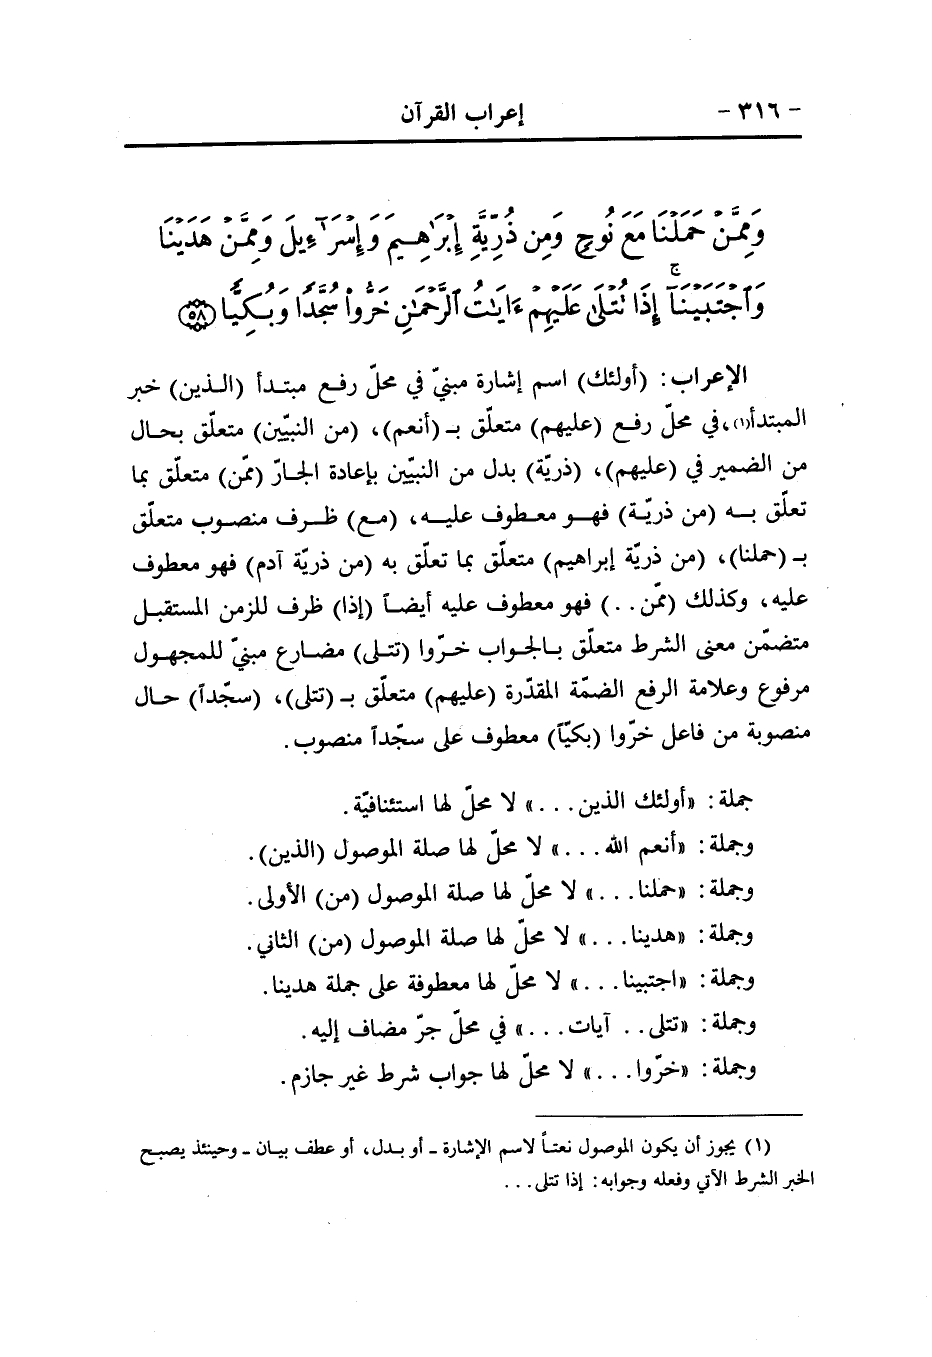 - ٣١٦ - إعراب القرآن
وَمِمَّنْ حَمَلْنَا مَعَ نُوحٍ وَمِن ذُرِّيَّةِ إِبْرَٰهِيمَ وَإِسْرَٰٓءِيلَ وَمِمَّنْ هَدَيْنَا
وَٱجْتَبَيْنَآ ۚ إِذَا تُتْلَىٰ عَلَيْهِمْ ءَايَٰتُ ٱلرَّحْمَٰنِ خَرُّوا۟ سُجَّدًا وَبُكِيًّا ﴿٥٨﴾
الإعراب: (أولئك) اسم إشارة مبنيّ في محلّ رفع مبتدأ (الذين) خبر
المبتدأ(١)، في محلّ رفع (عليهم) متعلّق بـ (أنعم)، (من النبيّين) متعلّق بحال
من الضمير في (عليهم)، (ذريّة) بدل من النبيّين بإعادة الجارّ (ممّن) متعلّق بما
تعلّق به (من ذريّة) فهو معطوف عليه، (مع) ظرف منصوب متعلّق
بـ (حملنا)، (من ذريّة إبراهيم) متعلّق بما تعلّق به (من ذريّة آدم) فهو معطوف
عليه، وكذلك (ممّن . .) فهو معطوف عليه أيضاً (إذا) ظرف للزمن المستقبل
متضمّن معنى الشرط متعلّق بالجواب خرّوا (تتلى) مضارع مبنيّ للمجهول
مرفوع وعلامة الرفع الضمّة المقدّرة (عليهم) متعلّق بـ (تتلى)، (سجّداً) حال
منصوبة من فاعل خرّوا (بكيّاً) معطوف على سجّداً منصوب.
جملة: «أولئك الذين . . .» لا محلّ لها استئنافيّة.
وجملة: «أنعم الله . . .» لا محلّ لها صلة الموصول (الذين).
وجملة: «حملنا . . .» لا محلّ لها صلة الموصول (من) الأولى.
وجملة: «هدينا . . .» لا محلّ لها صلة الموصول (من) الثاني.
وجملة: «اجتبينا . . .» لا محلّ لها معطوفة على جملة هدينا.
وجملة: «تتلى . . آيات . . .» في محلّ جرّ مضاف إليه.
وجملة: «خرّوا . . .» لا محلّ لها جواب شرط غير جازم.
(١) يجوز أن يكون الموصول نعتاً لاسم الإشارة ـ أو بدل، أو عطف بيان ـ وحينئذ يصبح
الخبر الشرط الآتي وفعله وجوابه: إذا تتلى . . .